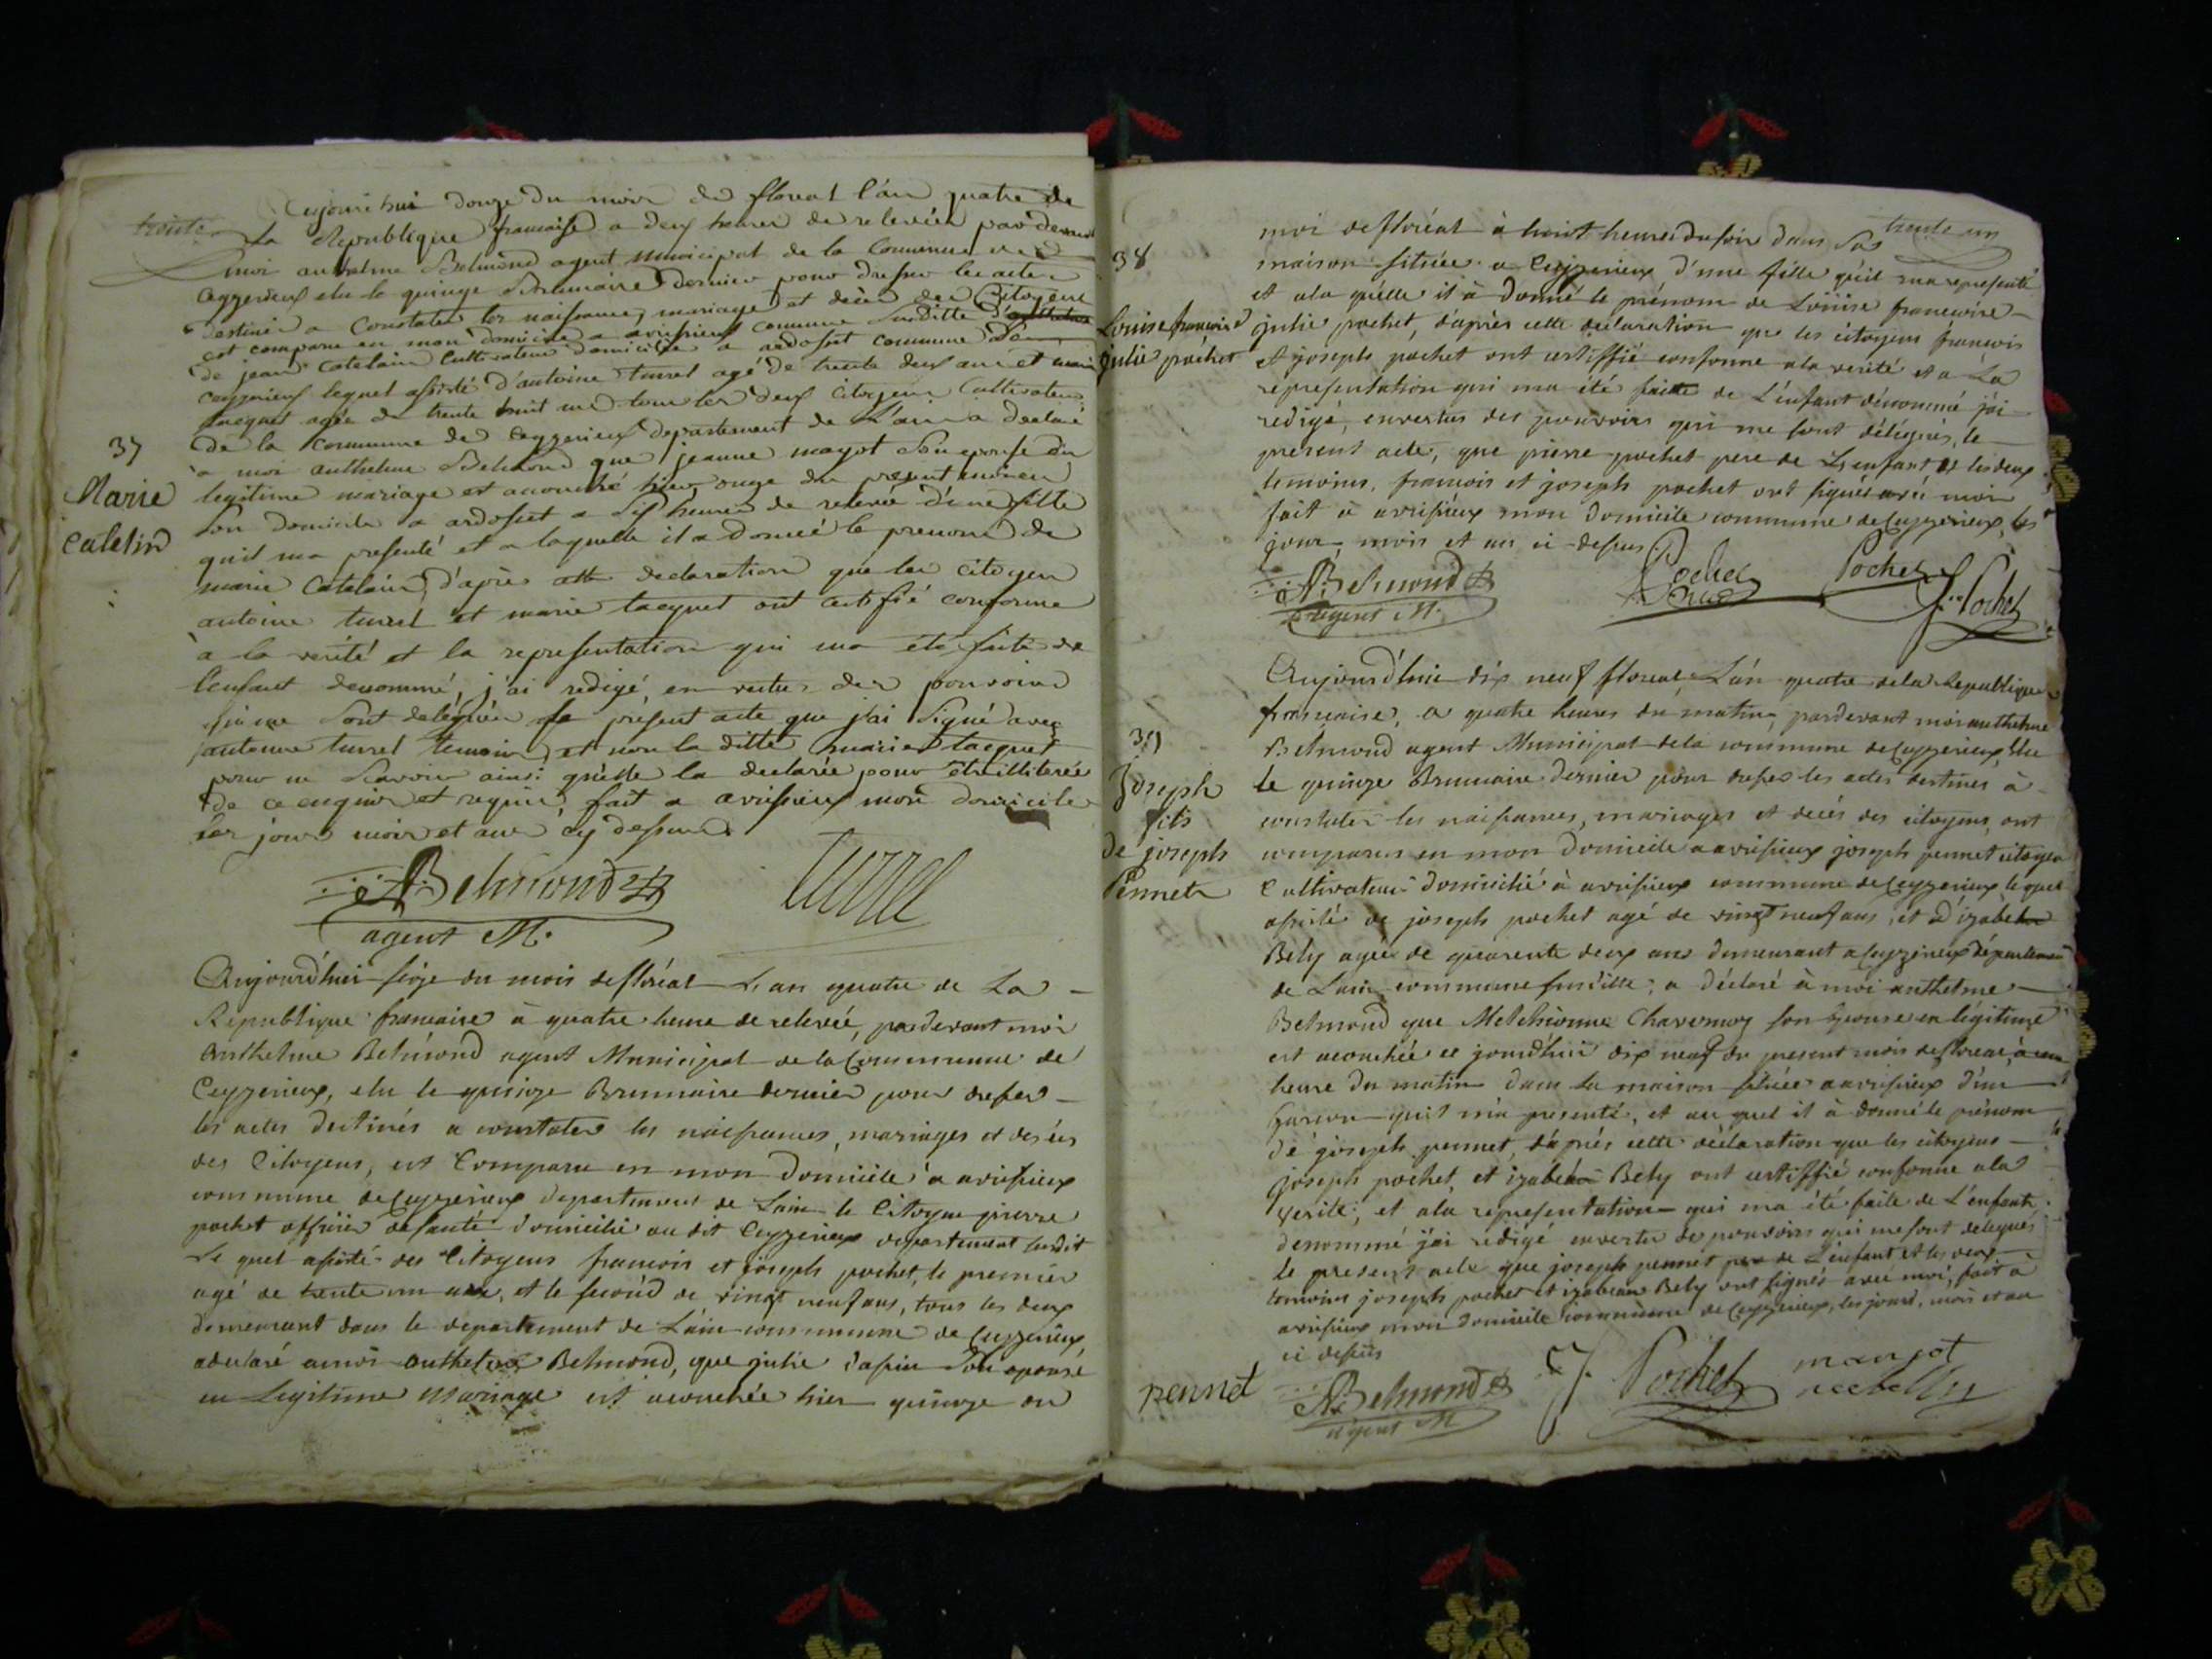 trente
Aujourdhui douze du mois de floreal l'an quatre de
la Republique francaise a deux heures de relevée par devant
moi anthelme Belmond agent municipal de la Commune de
Ceyzerieux elu le quinze Brumaire dernier pour dresser les actes
destinés a Constater les naissances, mariages et décès des Citoyens
est comparu en mon domicile a avrissieux commune susditte
de jean Catelain Cultivateur domicilié a ardosset commune de
ceyzerieux lequel assisté d'antoine turrel agé de trente deux ans et marie
tacquet agée de trente huit ans tous les deux Citoyens Cultivateurs
de la Commune de Ceyzerieux departement de L'ain a declaré
37
a moi anthelme Belmond que jeanne mayot son epouse en
Marie
Caletin
legitime mariage est accouché hier onze du present mois en
son domicile a ardosset a six heures de relevée d'une fille
quil ma presenté et a laquelle il a donné le prenom de
marie Catelain, d'après declaration que les citoyens
antoine turrel et marie tacquet ont certifié conforme
à la verité et la representation qui ma été faite de
lenfant denommé, j'ai redigé, en vertu des pouvoirs
qui me sont delégués le présent acte que j'ai signé avec
antoine turrel temoin, et non la ditte marie tacquet
pour ne scavoir ainsi quelle la declarée pour être illiterée
de ce enquise et requise, fait a avrissieux mon domicile
les jour mois et an cy dessus
ABelmond
agent M.
turrel
Aujourd'hui seize du mois de floréal L'an quatre de La
Republique francaise à quatre heure de relevée, pardevant moi
Anthelme Belmond agent Municipal de la Commune de
Ceyzerieux, elu le quinze Brumaire dernier pour dresser
les actes destinés a constater les naissances, mariages et décès
des Citoyens, est Comparu en mon domicile à avrissieux
commune de Ceyzerieux departement de Lain le Citoyen pierre
pochet officier de santé domicilié au dit Ceyzerieux departement susdit
Le quel assisté des Citoyens francois et joseph pochet, le premier
agé de trente un ans, et le second de vingt neuf ans, tous les deux
demeurant dans le departement de Lain commune de Ceyzerieux
a declaré a moi anthelme Belmond, que julie son epouse
en Legitime Mariage est acouchée hier quinze du
trente un
moi de floréal à huit heures du soir dans Sa
38
maison située a Ceyzerieux d'une fille qu'il ma representé
et a la quelle il à donné le prénom de Loüise francoise
Louise francoise
julie pochet
julie pochet, d'après cette declaration que les citoyens francois
et joseph pochet ont certiffié conforme a la verité et a La
representation qui ma été faite de L'enfant dénommé j'ai
redigé, en vertus des pouvoirs qui me sont délégués, le
présent acte, que pierre pochet pere de L'enfant et les deux
temoins, francois et joseph pochet ont signés avec moi
fait à avrissieux mon domicile commune de Ceyzerieux, les
jour, mois et an ci-dessus
ABelmond
agent M.
Pochet
Pochet
J. Pochet
Aujourd'hui dix neuf floreal L'an quatre de la Republique
francaise, a quatre heures du matin, pardevant moi anthelme
39
Belmond agent Municipal de la commune de Ceyzerieux, Elu
Joseph
fils
de joseph
Pennet
le quinze Brumaire dernier pour dresser les actes destinés à
constater les naissances, mariages et décès des citoyens, ont
comparus en mon domicile a avrissieux joseph pennet citoyen
Cultivateur domicilié à avrissieux commune de Ceyzerieux, le quel
assisté de joseph pochet agé de vingt neuf ans, et d'izabeau
Bely agée de quarente deux ans demeurant a Ceyzerieux département
de Lain commune susditte; a déclaré à moi anthelme
Belmond que Melchionne son Epouse en légitime
est acouchée ce jourd'hui dix neuf du present mois de floreal, à une
heure du matin dans sa maison située a avrissieux d'un
Garcon quil m'a presenté, et au quel il à donné le prénom
de joseph pennet, d'après cette déclaration que les citoyens
joseph pochet, et izabeau Bely ont certiffié conforme a la
verité, et a la representation qui ma été faite de L'enfant
dénommé j'ai rédigé en vertu de pouvoirs qui me sont delegués
le present acte que joseph pennet pere de L'enfant et les deux
temoins joseph pochet et izabeau Bely ont signés avec moi, fait a
avrissieux mon domicile commune de Ceyzerieux, les jour, mois et an
ci dessus
pennet
ABelmond
agent M
J. Pochet